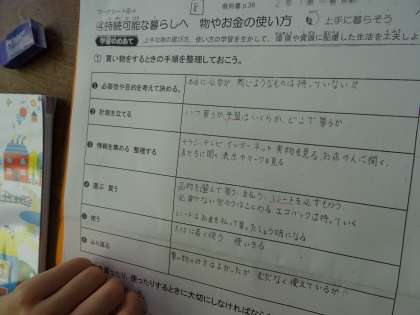 ワークシート④-4
教科書 p.38
④持続可能な暮らしへ 物やお金の使い方
⑤ 上手に暮らそう
学習のめあて 上手な物の選び方、使い方の学習を生かして、環境や資源に配慮した生活を工夫しよ
① 買い物をするときの手順を整理しておこう。
❶ 必要性や目的を考えて決める。
本当に必要か、同じようなものは持っていない!!
❷ 計画を立てる
いつ買うか 予算はいくらか、どこで買うか
❸ 情報を集める 整理する
チラシ・テレビ、インターネット 実物を見る、お店の人に聞く、
友だちに聞く、表示やマークを見る
❹ 選ぶ 買う
品物を選んで買う、支払う、レシートを必ずもらう
必要でない包そうはことわる エコバックは持っていく
❺ 使う
レシートはお金を払って買ったしょう明になる
大切に長く使う 使いきる
❻ ふり返る
買い物の仕方はよかったか むだなく使えているか
ったり、使ったりするときに大切にしなければなら